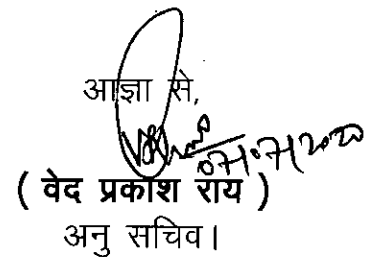 आज्ञा से,
( वेद प्रकाश राय )
अनु सचिव।